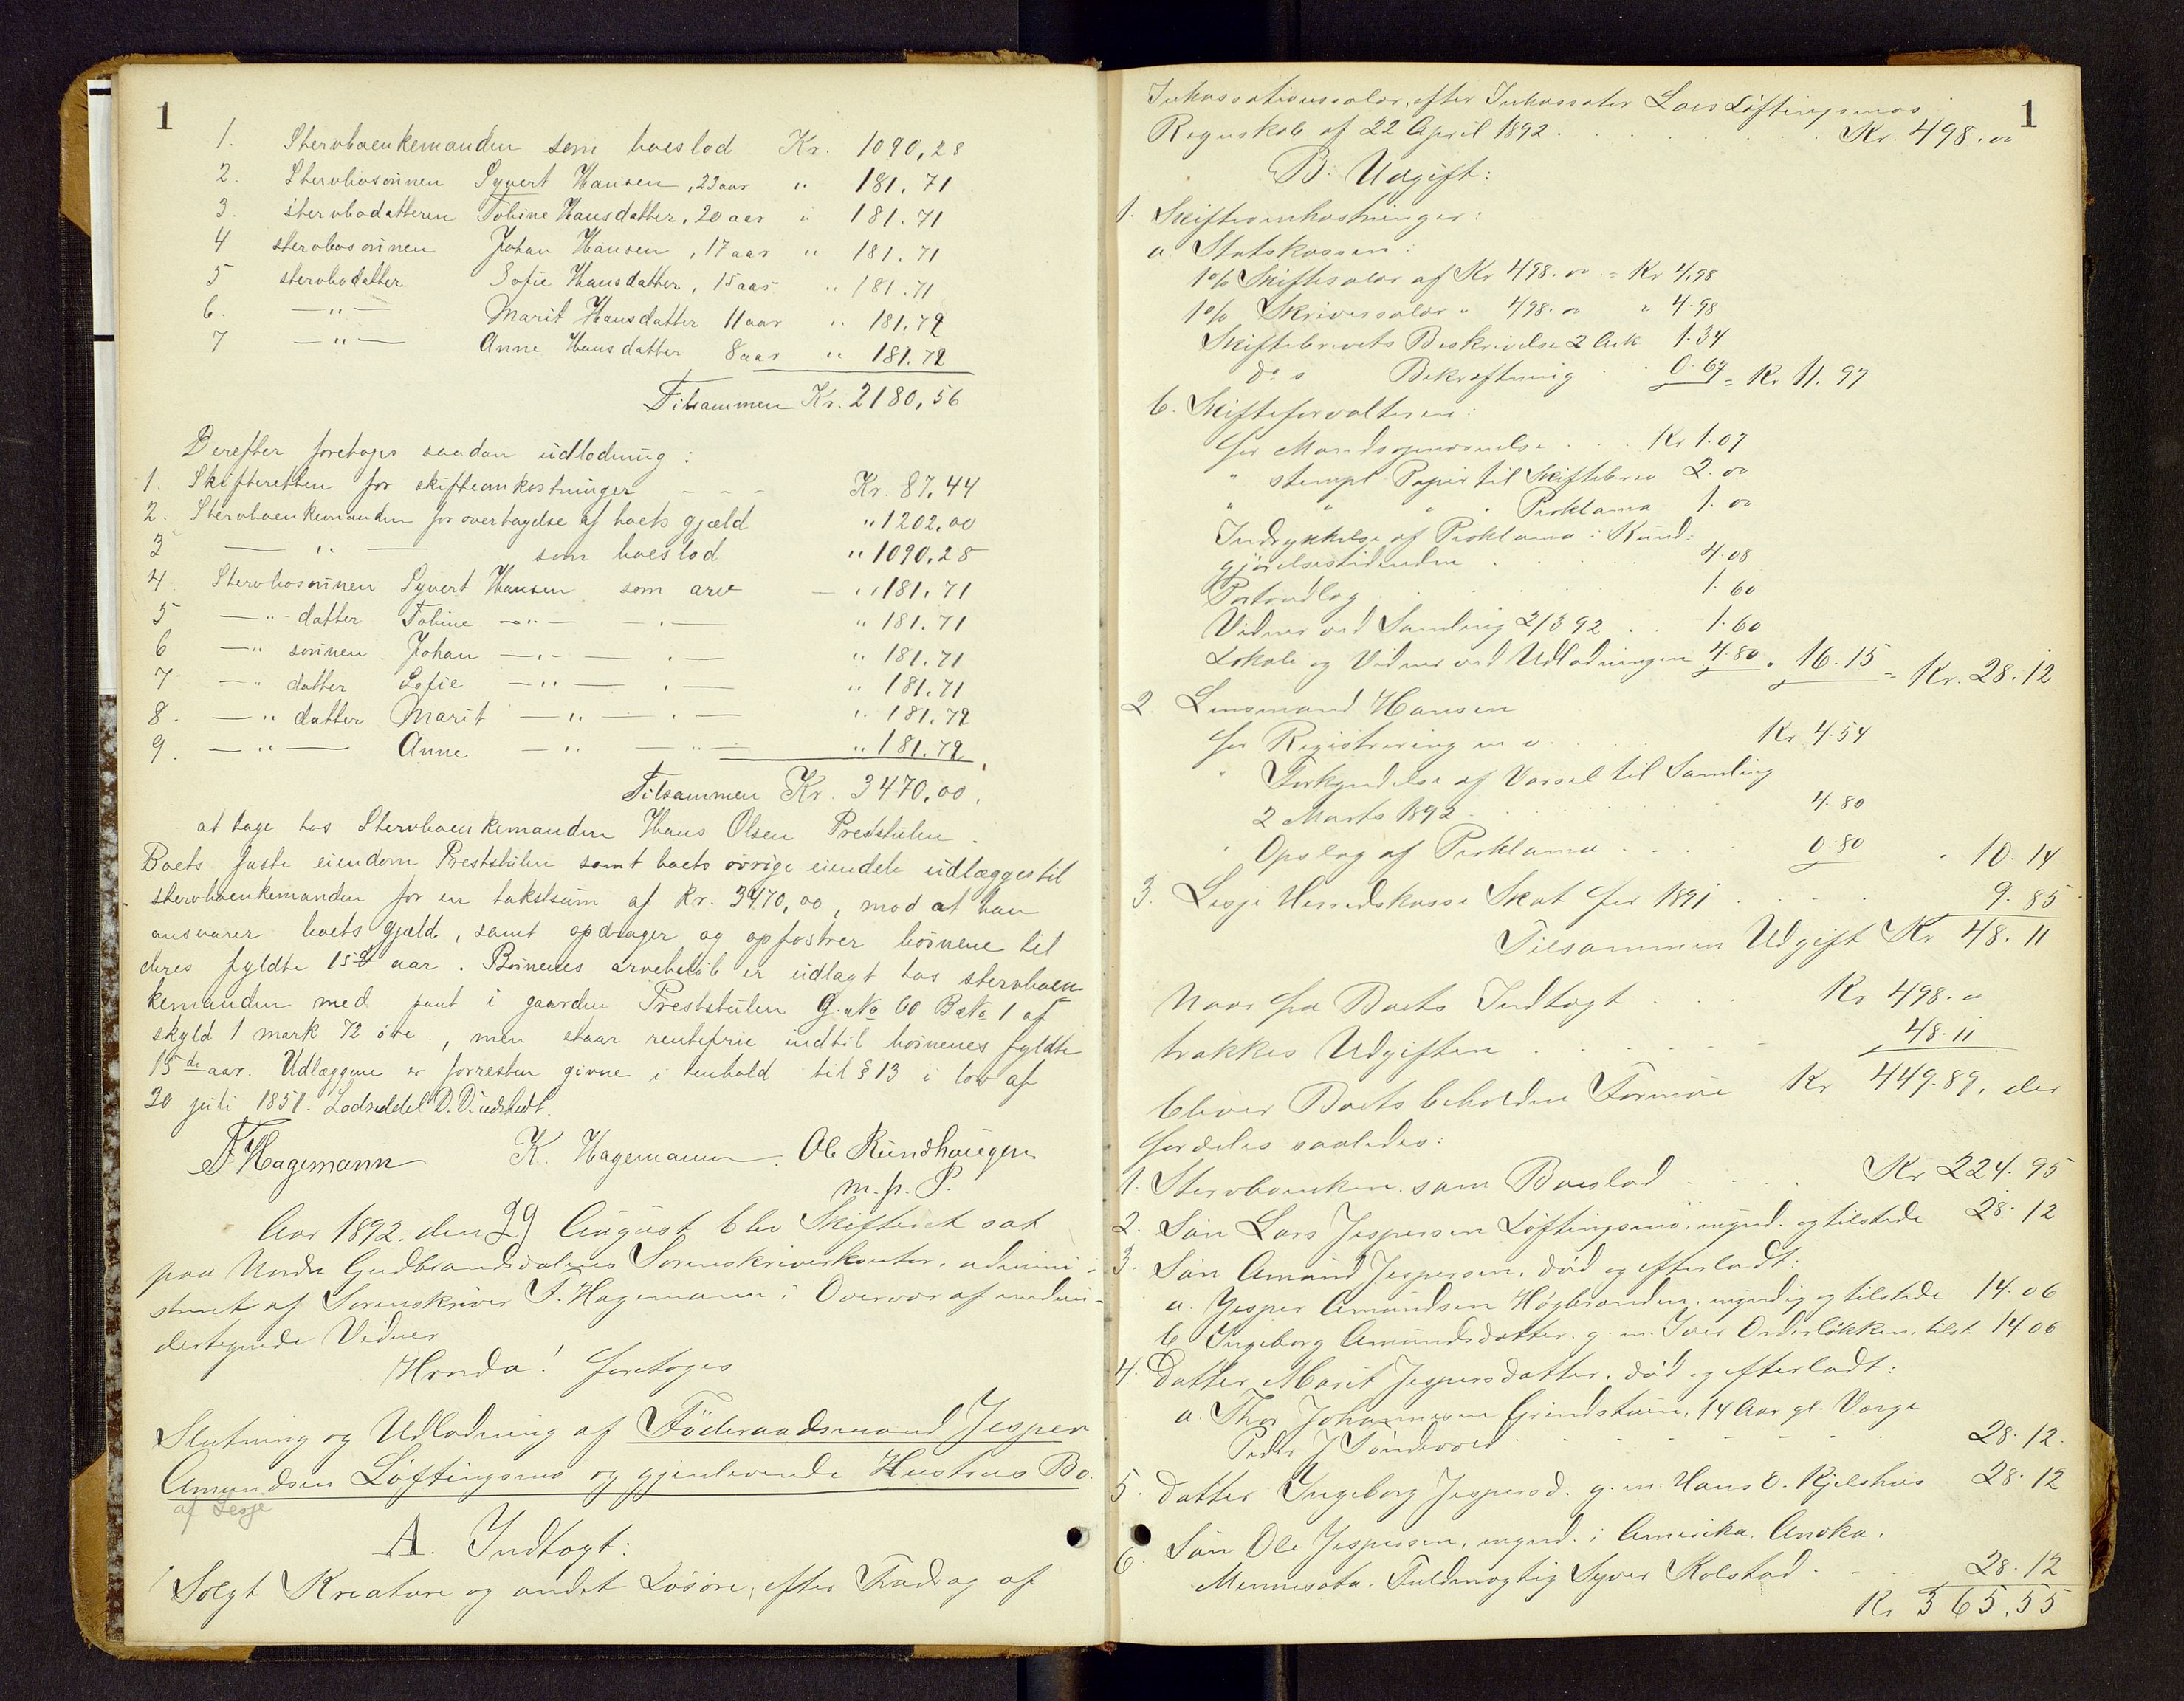 1
1. Stervboenkemanden som boeslod Kr. 1090,28
2. Stervbosønnen Syvert Hansen, 23 aar " 181.71
3. stervbodatteren Tobine Hansdatter, 20 aar " 181.71
4 stervbosønnen Johan Hansen, 17 aar " 181.71
5 stervbodatter Sofie Hansdatter, 15 aar " 181.71
6. —"— Marit Hansdatter 11 aar " 181.72
7 —"— Anne Hansdatter 8 aar " 181.72
Tilsammen Kr. 2180,56
Derefter foretages saadan udlodning:
1. Skifteretten for skifteomkostninger - - - Kr. 87,44
2. Stervboenkemanden for overtagelse af boets gjæld " 1202.00
3 —"— som boeslod " 1090,28
4. Stervbosønnen Syvert Hansen som arv — " 181.71
5 —"— datter Tobine —"— —"— " 181.71
6 —" sønnen Johan —"— —"— " 181.71
7 —" datter Sofie —"— —"— " 181.71
8. —" datter Marit —"— —"— " 181.72
9. —"— Anne —"— —"— " 181.72
Tilsammen Kr. 3470,00.
at tage hos Stervboenkemanden Hans Olsen Preststulen.
Boets faste eiendom Preststulen samt boets øvrige eiendele udlægges til
stervboenkemanden for en takstsum af Kr. 3470,00, mod at han
ansvarer boets gjæld, samt opdrager og opfostrer børnene til
deres fyldte 15de aar. Børnenes arvebeløb er udlagt hos stervboen-
kemanden med pant i gaarden Preststulen G. No 60 B. No 1 af
skyld 1 mark 72 øre, men staar rentefrie indtil børnenes fyldte
15de aar. Udlæggene er forresten givne i henhold til § 13 i lov af
30 juli 1851. Lodseddel D. D. udstedt.
F Hagemann K. Hagemann. Ole Rundhaugen
m. p. P.
Aar 1892. den 29 August blev Skifteret sat
paa Nordre Gudbrandsdalens Sorenskriverkontor, admini-
streret af Sorenskriver F. Hagemann i Overvær af medun-
dertegnede Vidner
Hvorda! foretoges
Slutning og Udlodning af Föderaadsmand Jesper
Amundsen Løftingsmo og gjenlevende Hustrus Bo.
af Lesje
A. Indtægt:
1 Solgt Kreature og andet Løsøre, efter Fradrag af
1
Inkassationssalær, efter Inkassator Lars Løftingsmos
Regnskab af 22 April 1892 . . . . . Kr. 498.00
B. Udgift:
1. Skifteomkostninger:
a. Statskassen:
1% Skiftesalær af Kr 498.00 = Kr 4.98
1% Skriversalær " 498.00 " 4.98
Skiftebrevets Beskrivelse 2 Ark 1.34
do s Bekræftning . . 0.67 = Kr 11.97
b. Skifteforvalteren:
for Mandsopnævnelse . . . Kr 1.07
" stempl Papir til Skiftebrev 2.00
" " " " Proklama 1.00
Indrykkelse af Proklama i Kund-
gjørelsestidenden . . . . 4.08
Portoudlæg . . . . . 1.60
Vidner ved Samling 2/3 92 . . 1.60
Lokale og Vidner ved Udlodningen 4.80 " 16.15 = Kr. 28.12
2. Lensmand Hansen
for Registrering m v. . . . Kr 4.54
" Forkyndelse af Varsel til Samling
2 Marts 1892 . . . . . 4.80
" Opslag af Proklama . . . . 0.80 " 10.14
3. Lesje Herredskasse Skat for 1891 . . . . 9.85
Tilsammen Udgift Kr 48.11
Naar fra Boets Indtægt . . . Kr 498.00
trækkes Udgiften . . . . . 48.11
bliver Boets beholdne Formue Kr 449.89, der
fordeles saaledes:
1. Stervboenken som Boeslod . . . . Kr 224.95
2. Søn Lars Jespersen Løftingsmo, mynd. og tilstede 28.12
3. Søn Amund Jespersen, död og efterladt:
a. Jesper Amundsen Høgbranden, myndig og tilstede 14.06
b Ingeborg Amundsdatter g. m. Iver Ordsløkken, tilst. 14.06
4. Datter Marit Jespersdatter, död og efterladt:
a. Thor Johannesen Grindstuen, 14 Aar gl. Værge
Peder J Söndevold . . . . . 28.12.
5. Datter Ingeborg Jespersd. g. m. Hans O. Kjelshus 28.12
6. Søn Ole Jespersen, mynd. i Amerika. Anoka.
Mennesota. Fuldmægtig Syver Kolstad . . . 28.12
Kr 365.55